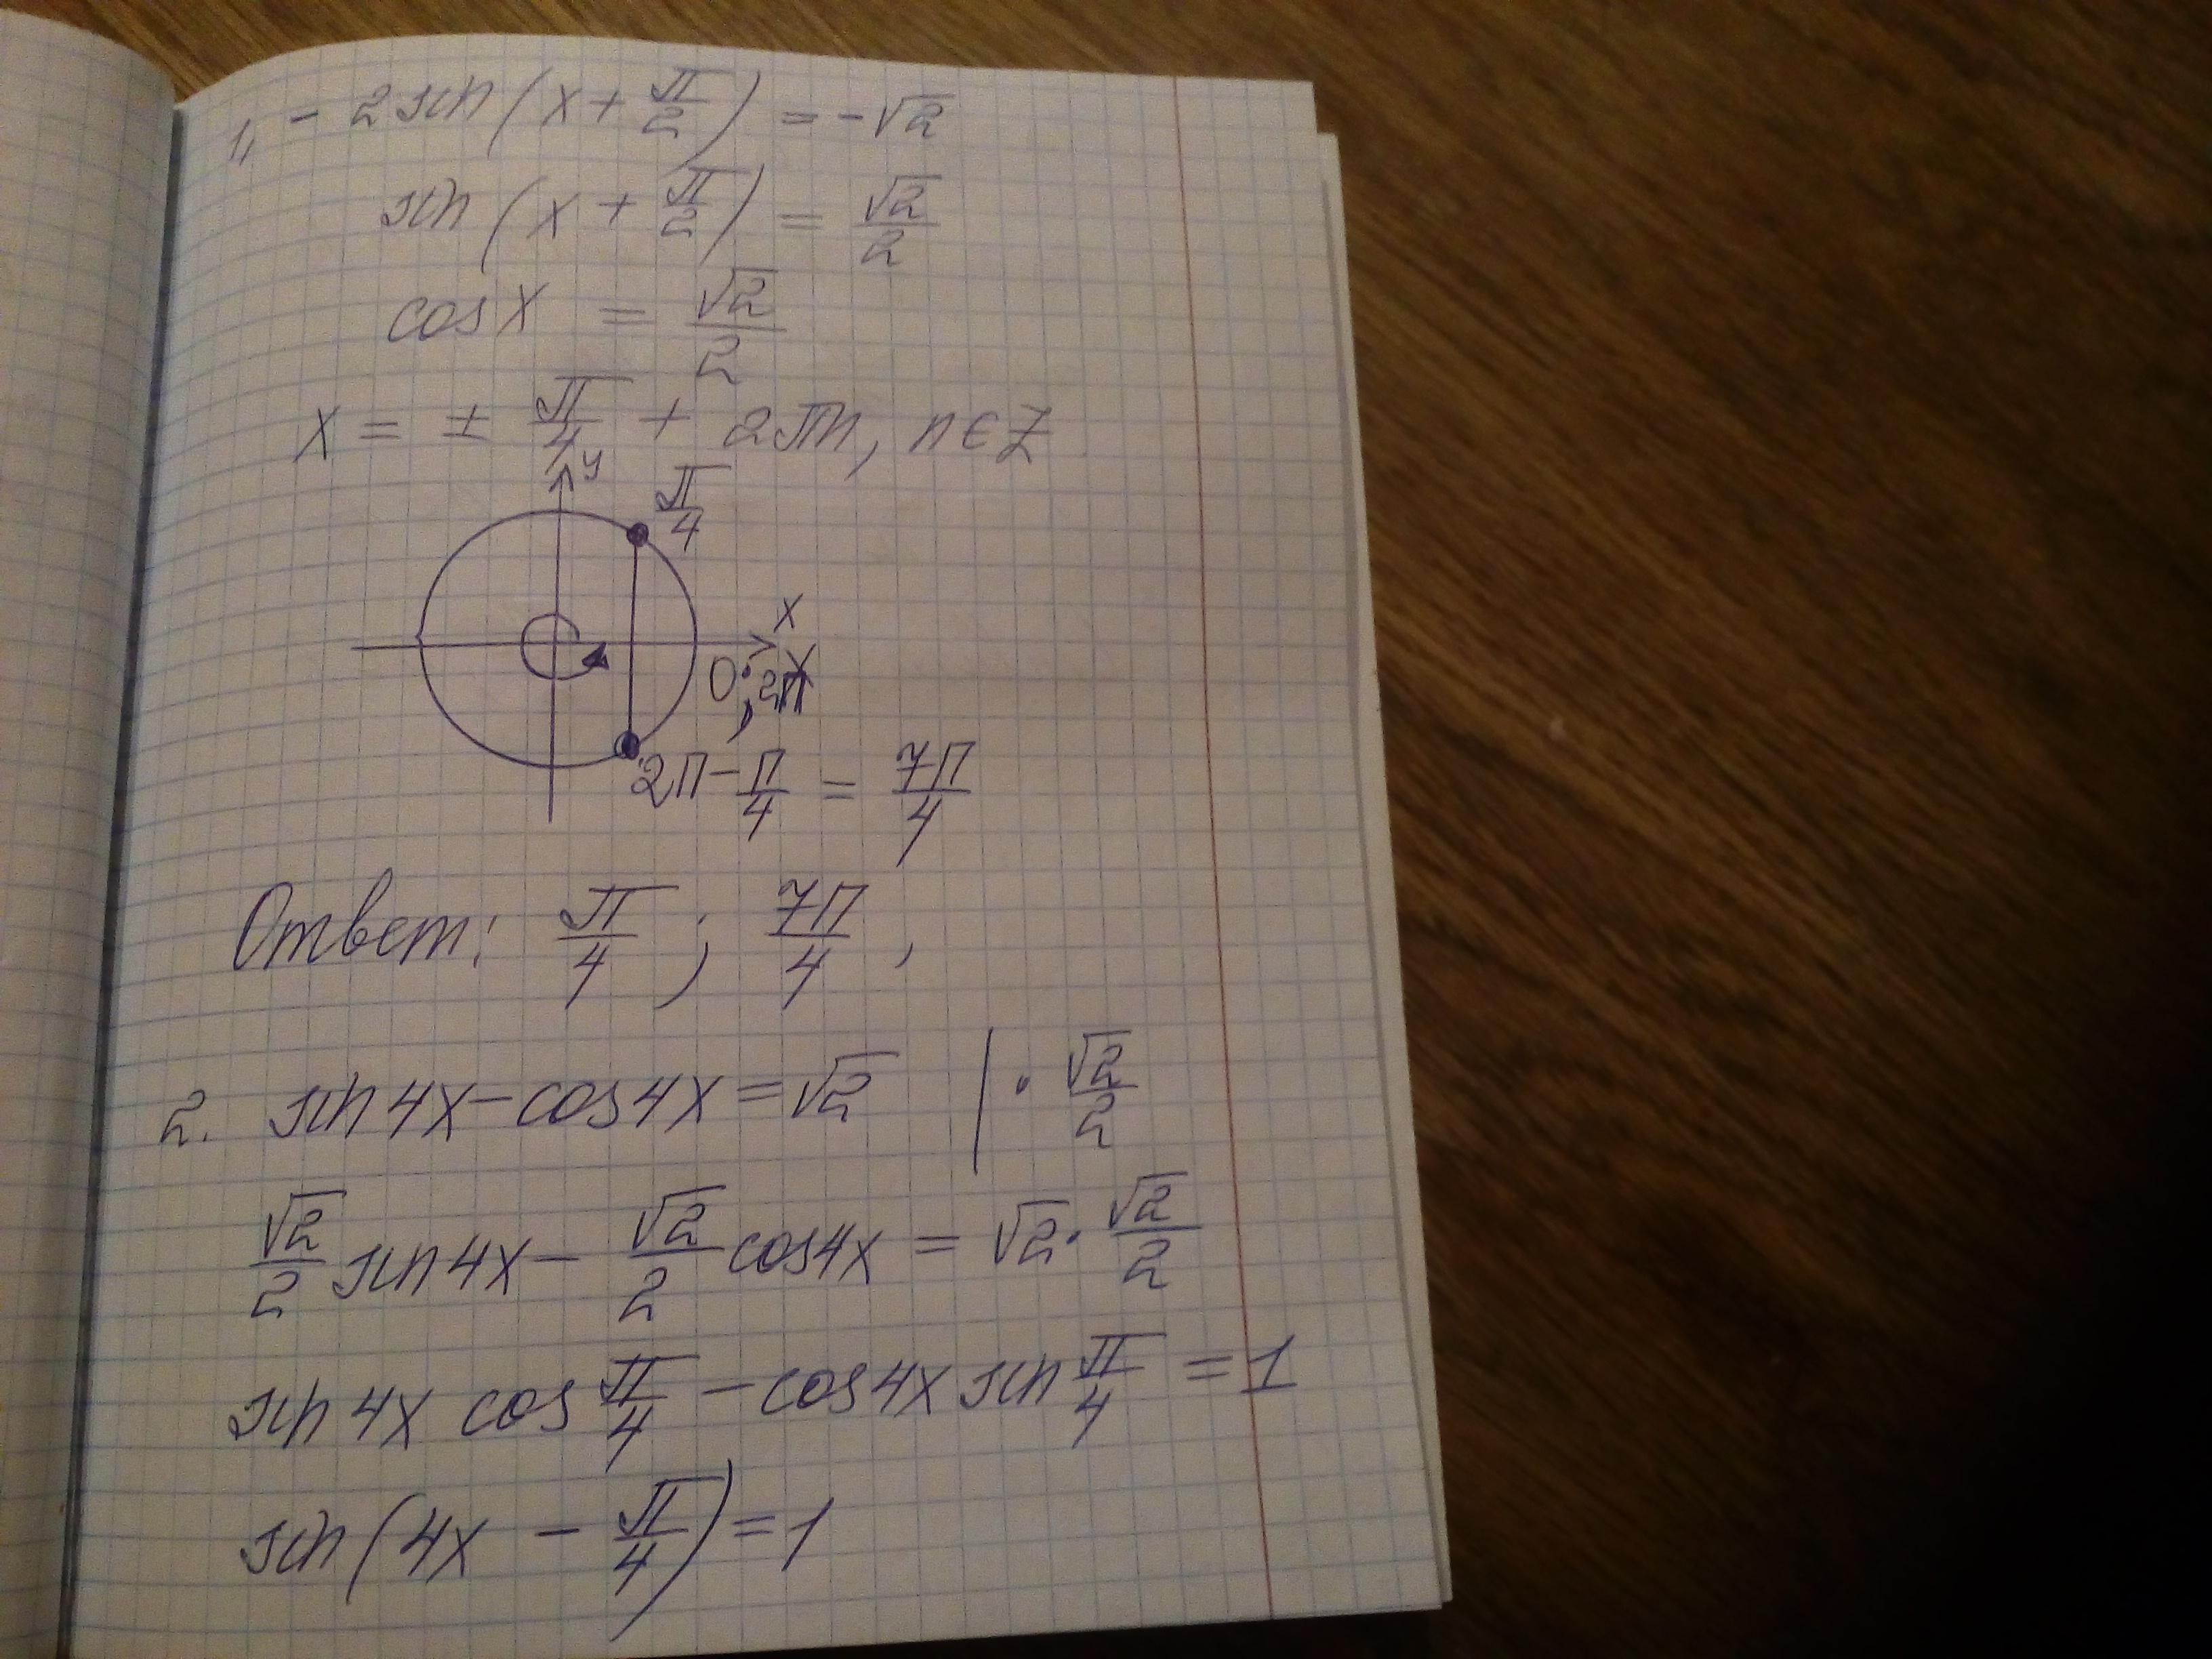 1, - 2 sin (x + π/2) = -√2
sin (x + π/2) = √2/2
cos x = √2/2
x = ± π/4 + 2πn, n ∈ Z
y
π/4
x
0; 2π
2π - π/4 = 7π/4
Ответ: π/4 ; 7π/4 ,
2. sin 4x - cos 4x = √2 | · √2/2
√2/2 sin 4x - √2/2 cos 4x = √2 · √2/2
sin 4x cos π/4 - cos 4x sin π/4 = 1
sin (4x - π/4) = 1